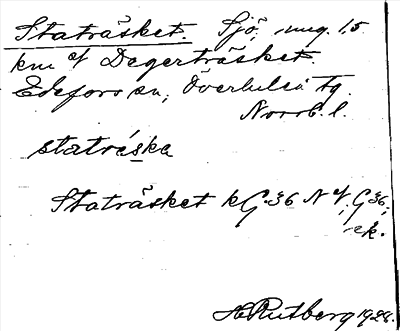 Staträsket. Sjö, ung. 1,5
km af Degerträsket.
Edefors sn, Överluleå tg.
Norrb. l.
statréska
Staträsket kG.36 N af, G 36,
ek.
H Rutberg 1928.